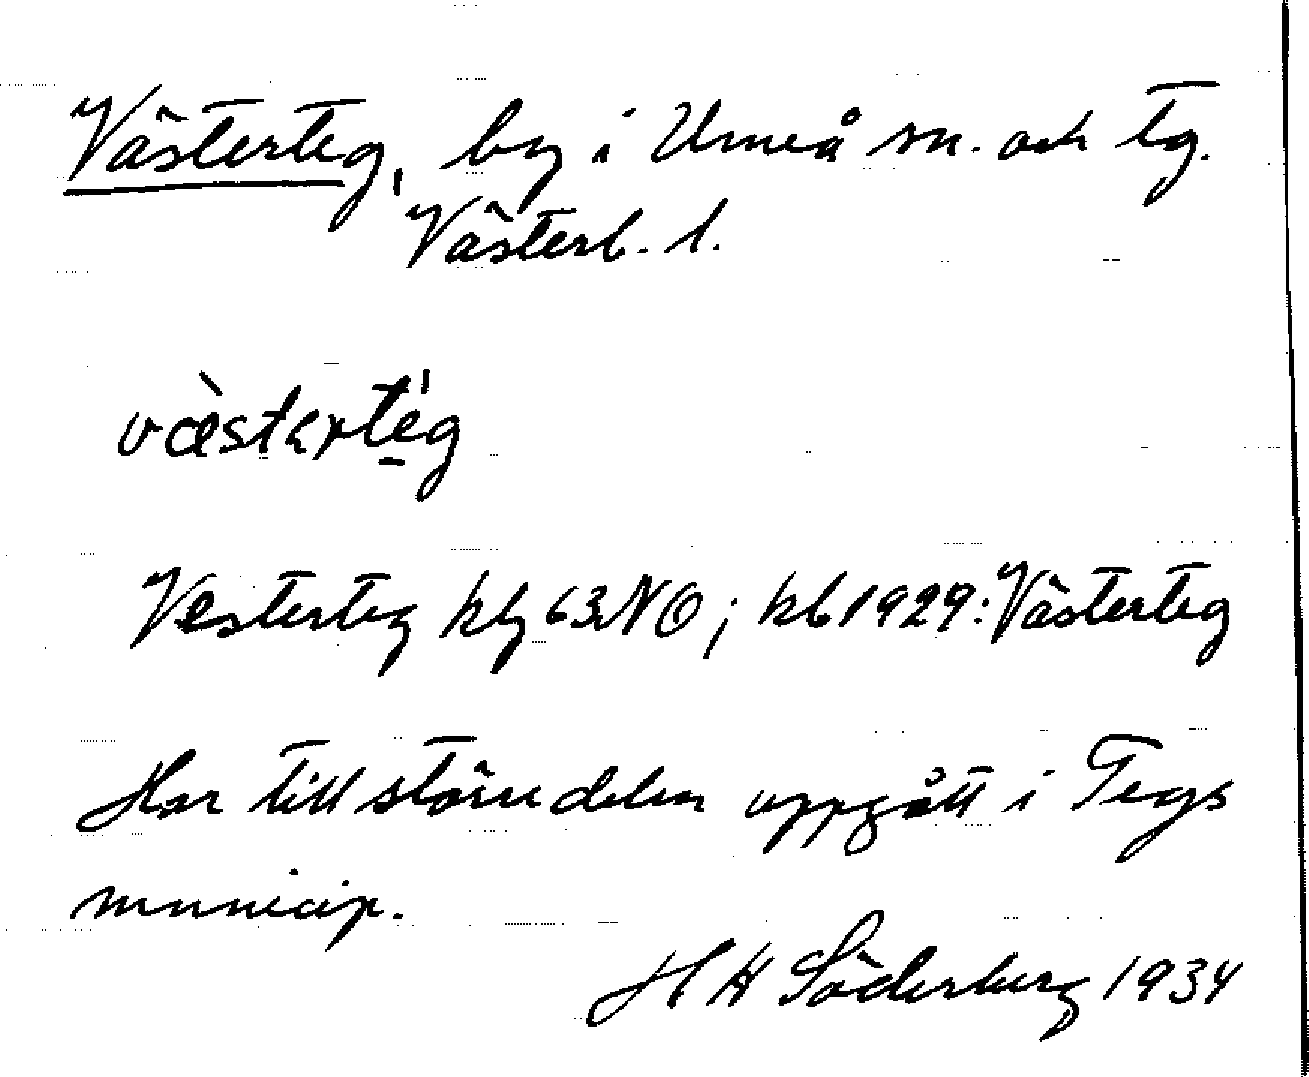 Västerteg, by i Umeå sn. och tg.
Västerb. l.
væ̀stərte̠̍g
Vesterteg kbg 63 NO; kb 1929: Västerteg
Har till större delen uppgått i Tegs
municip.
H H Söderberg 1934